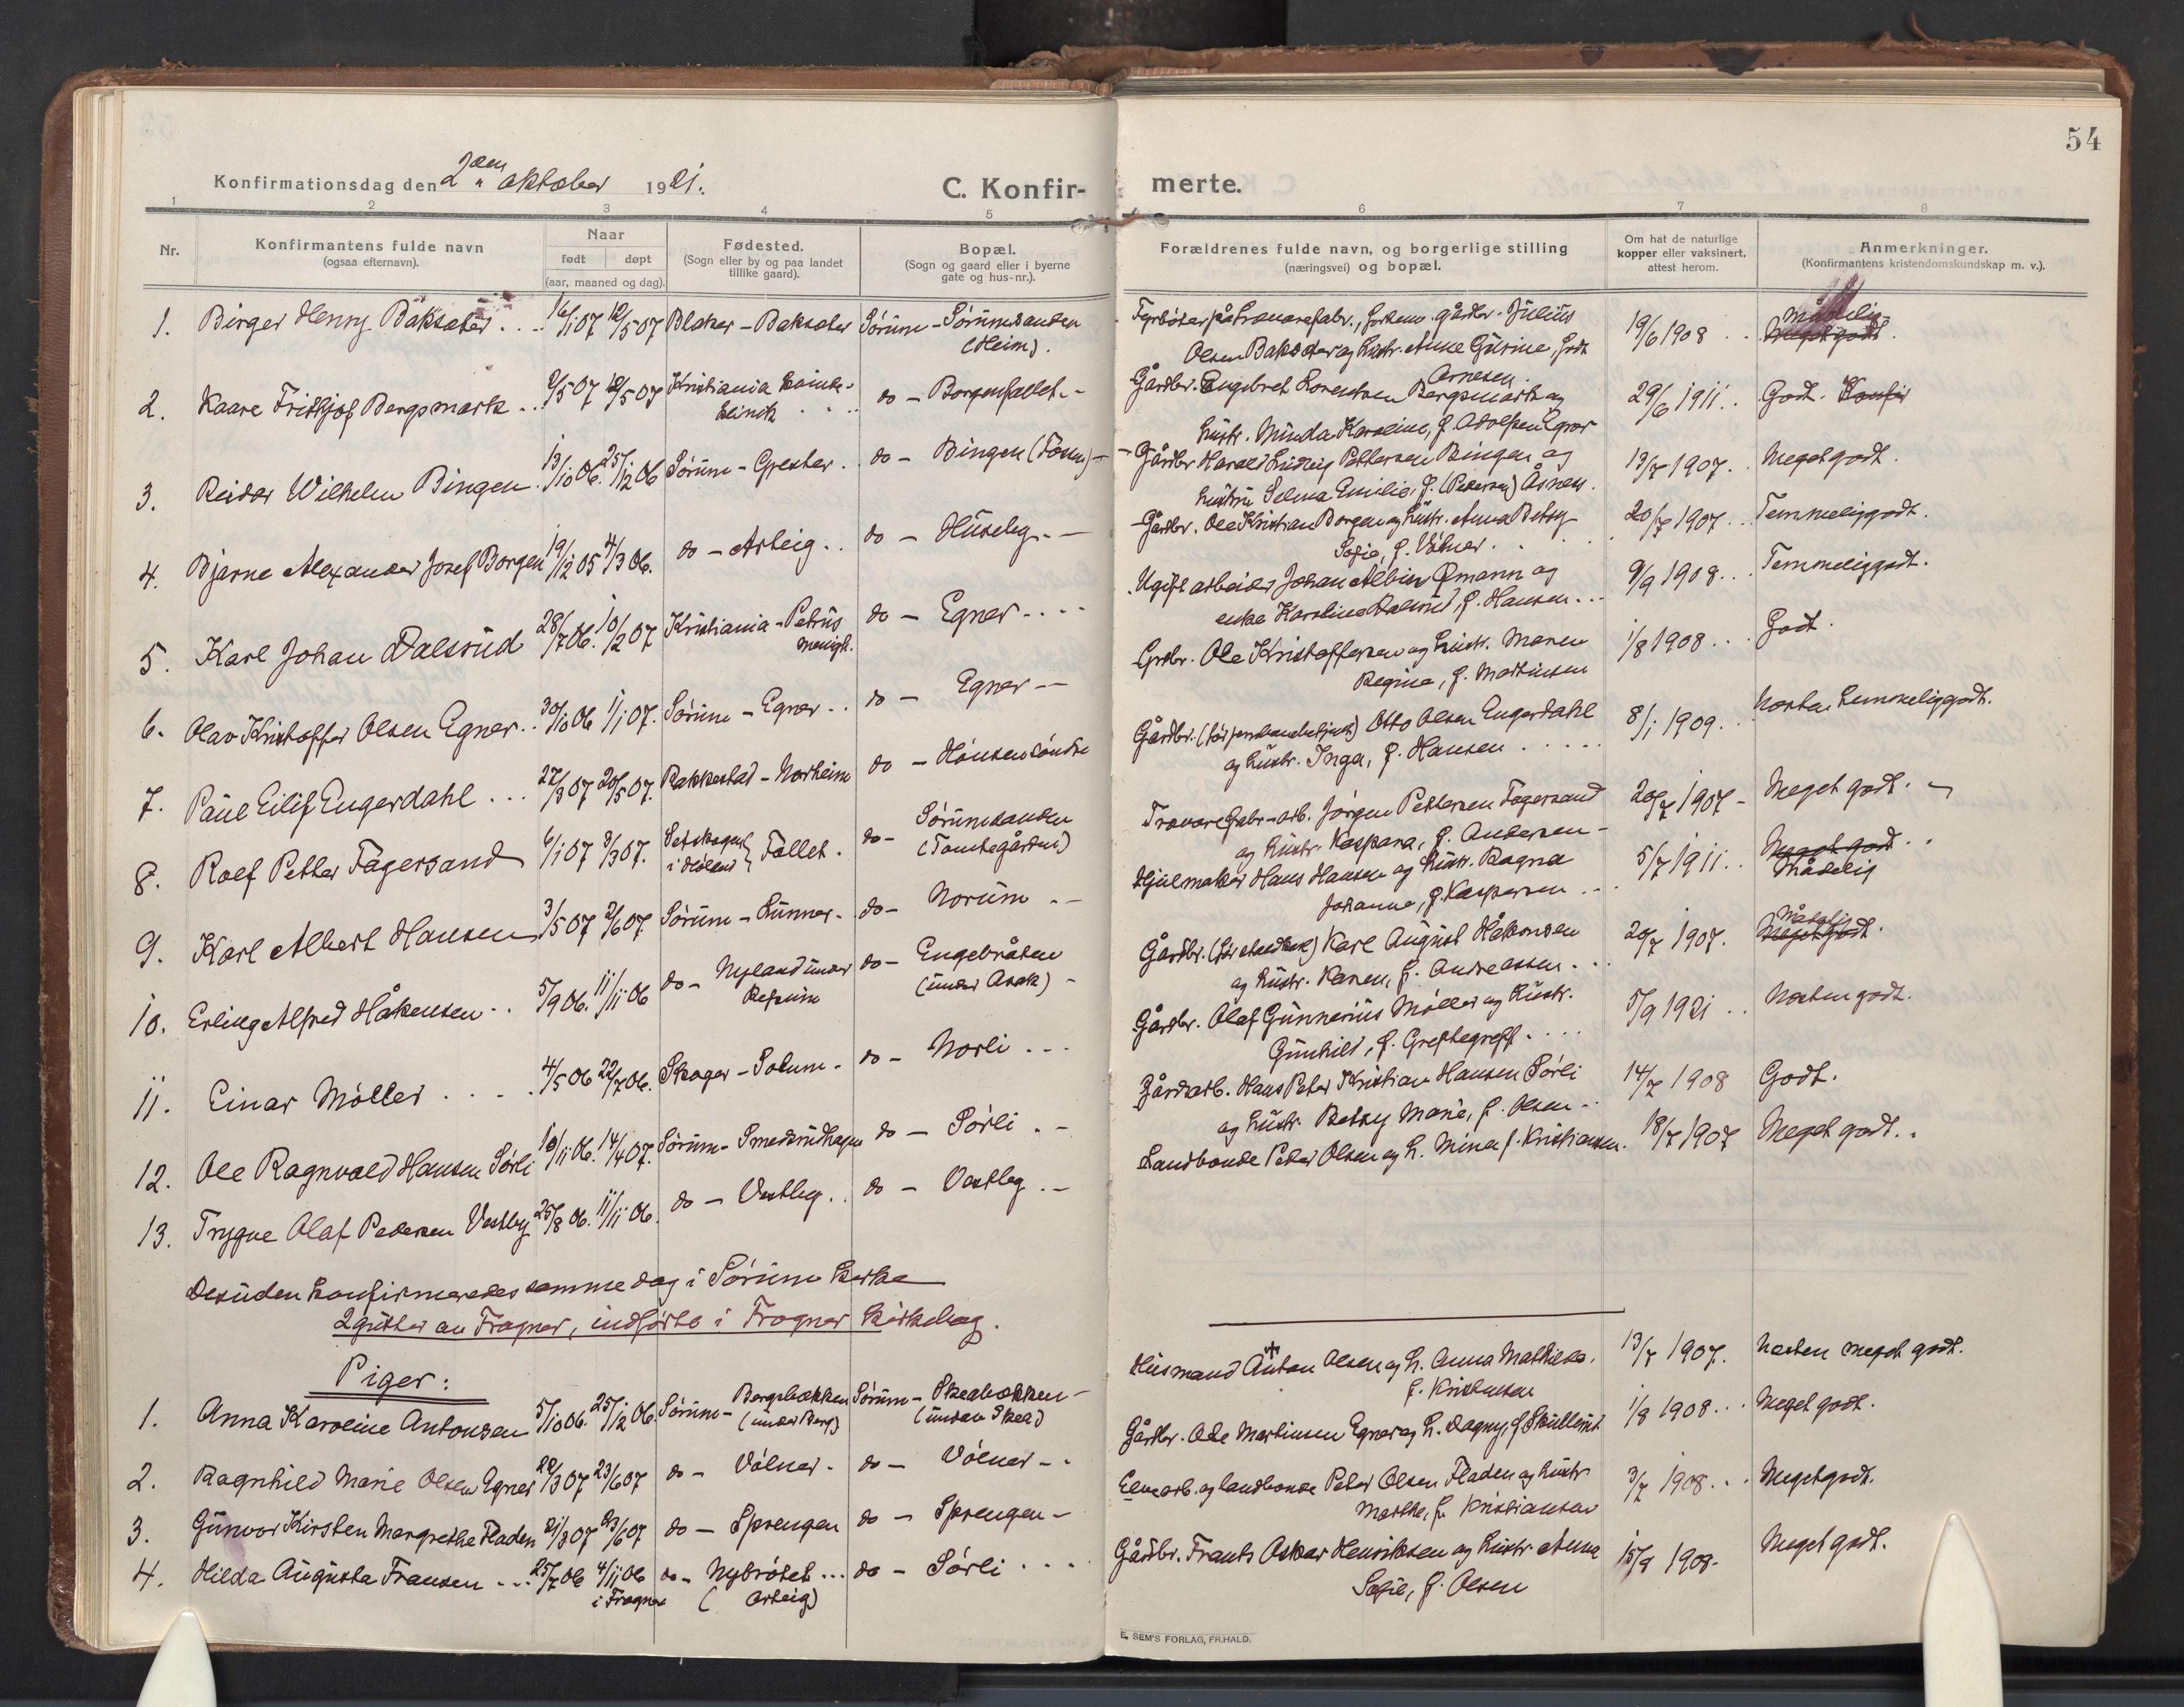 54
Konfirmationsdag den 2den oktober 1921.
C. Konfir-
merte.
1 2 3 4 5 6 7 8
Nr.
Konfirmantens fulde navn
(ogsaa efternavn).
Naar
født døpt
(aar, maaned og dag).
Fødested.
(Sogn eller by og paa landet
tillike gaard).
Bopæl.
(Sogn og gaard eller i byerne
gate og hus-nr.).
Forældrenes fulde navn, og borgerlige stilling
(næringsvei) og bopæl.
Om hat de naturlige
kopper eller vaksinert,
attest herom.
Anmerkninger.
(Konfirmantens kristendomskundskap m. v.).
1. Birger Henry Baksæter . . 16/1 07 12/5 07 Blaker - Baksæter Sørum - Sørumsanden
(Heim).
Fyrbøter på trævarefabr., forhenv. gårdbr. Julius
Olsen Baksæter og hustr. Anne Gurine, født
Arnesen.
19/6 1908 . . Mådelig
Meget godt.
2. Kaare Fritkjof Bergsmark . . 2/5 07 12/5 07 Kristiania kvinde-
klinik . . do - Borgenfallet. -
Gårdbr. Engebret Lorentsen Bergsmark og
hustr. Minda Karoline, f. Adolfsen Egner
29/6 1911 . . Godt. Konfir
3. Reidar Wilhelm Bingen. 13/10 06. 25/12 06 Sørum - Grester . do - Bingen (Tosen) -
Gårdbr Harald Ludvig Pettersen Bingen og
hustru Selma Emilie, f. (Pedersen) Åsnes.
13/7 1907. Meget godt.
4. Bjarne Alexander Josef Borgen 19/12 05 4/3 06. do - Asteig . . do - Huseby. -
Gårdbr. Ole Kristian Borgen og hustr. Anna Betsy
Sofie, f. Vølner. . .
20/7 1907. . Temmelig godt.
5. Karl Johan Dalsrud 28/7 06. 10/2 07 Kristiania - Petrus
menigh. do - Egner . . . .
Ugift arbeider Johan Albin Ømann og
enke Karoline Dalsrud, f. Hansen . . .
9/9 1908 . . Temmelig godt.
6. Olav Kristoffer Olsen Egner . . 30/10 06 1/1 07. Sørum - Egner - . do - Egner - -
Grdbr. Ole Kristoffersen og hustr. Maren
Regine, f. Martinsen
1/8 1908 . . . Godt.
7. Paul Eilif Engerdahl . . . 27/3 07 20/5 07. Rakkestad - Norheim do - Hønsen søndre
Otto Olsen Engerdahl
og hustr. Inga, f. Hansen . . . . .
8/1 1909. . Næsten temmelig godt.
8. Rolf Petter Fagersand 6/1 07 3/3 07. Setskogen
i Høland Fallet . do - Sørumsanden
(Tomtegården)
Trævarefabr-arb. Jørgen Pettersen Fagersand
og hustr. Kaspara, f. Andersen -
20/7 1907 - Meget godt. -
9. Karl Albert Hansen 3/5 07 2/6 07. Sørum - Lunner - . do - Norum . -
Hjulmaker Hans Hansen og hustr. Ragna
Johanne, f. Kaspersen . . .
5/7 1911. . Meget godt . .
Mådelig
10. Erling Alfred Håkonsen . . 5/9 06. 11/11 06 do - Nyland under
Refsum do - Engebråten
(under Asak) -
Karl August Håkonsen
og hustr. Karen, f. Andreassen . . .
20/7 1907. Mådelig
Meget godt.
11. Einar Møller . . . . . 4/5 06 22/7 06. Skoger - Solum - do - Norli . . .
Gårdbr. Olaf Gunnerius Møller og hustr.
Gunhild, f. Greftegreff . . . .
5/9 1921 . . Næsten godt.
12. Ole Ragnvald Hansen Sørli 10/11 06. 14/4 07. Sørum - Smedsrudhagen do - Sørli . -
Gårdarb. Hans Peter Kristian Hansen Sørli
og hustr. Betsy Marie, f. Olsen . .
14/7 1908 Godt.
13. Trygve Olaf Pedersen Vestby 25/8 06. 11/11 06. do - Vestby . . do - Vestby . -
Landbonde Peder Olsen og h. Mina f. Kristiansen.
18/7 1907 Meget godt. .
Desuden konfirmeredes samme dag i Sørum kirke
2 gutter av Frogner, indførte i Frogner kirkebog.
Piger:
1. Anna Karoline Antonsen 5/10 06. 25/12 06. Sørum - Bergsbækken
(under Berg) Sørum - Skeabækken -
(under Skea)
Husmand Anton Olsen og h. Anna Mathilde,
f. Kristensen
13/7 1907. Næsten meget godt.
2. Ragnhild Marie Olsen Egner 22/3 07 23/6 07 do - Vølner - do - Vølner - .
Gårdbr. Ole Martinsen Egner og h. Dagny, f. Skullerud.
1/8 1908 . . . Meget godt.
3. Gunvor Kirsten Margrethe Fladen 21/3 07 23/6 07 do - Sprengen do - Sprengen -
Elvearb. og landbonde Peter Olsen Fladen og hustr
Marthe, f. Kristiansen
3/7 1908 . . . Meget godt.
4. Hilda Augusta Fransen . . . 25/7 06 4/11 06
i Frogner do - Nybrøtet . . .
( Asteig) do - Sørli . . .
Gårdbr. Frants Oskar Henriksen og hustr. Anna
Sofie, f. Olsen
15/9 1908- Meget godt.
E. SEM'S FORLAG, FR.HALD.